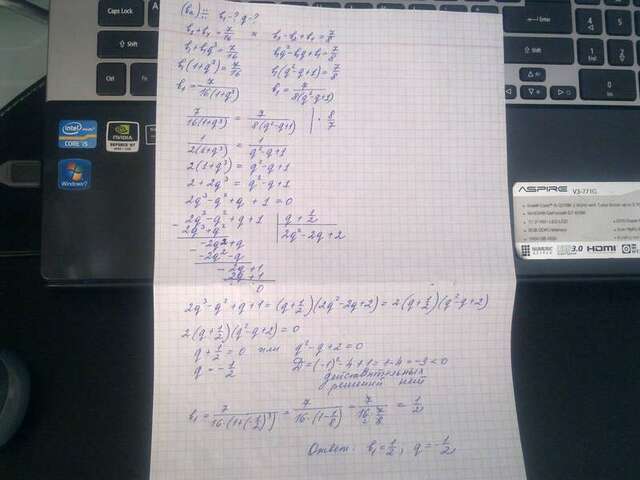 Caps Lock
Shift
Ctrl
Fn
Shift
Ctrl
Enter
intel
CORE i5
NVIDIA
GEFORCE GT
Windows 7
ASPIRE V3-771G
NUMERIC KEYPAD
3.0 HDMI
(bₙ) ÷÷ b₁-? q-?
b₄+b₁=7/16 и b₃-b₂+b₁=7/8
b₁+b₁q³=7/16 b₁q²-b₁q+b₁=7/8
b₁(1+q³)=7/16 b₁(q²-q+1)=7/8
b₁=7/16(1+q³) b₁=7/8(q²-q+1)
7/16(1+q³) = 7/8(q²-q+1) | · 8/7
1/2(1+q³) = 1/q²-q+1
2(1+q³) = q²-q+1
2+2q³ = q²-q+1
2q³-q²+q+1=0
- 2q³-q²+q+1 | q+1/2
2q³+q² | 2q²-2q+2
- -2q²+q
-2q²-q
- 2q+1
2q+1
0
2q³-q²+q+1=(q+1/2)(2q²-2q+2)=2(q+1/2)(q²-q+2)
2(q+1/2)(q²-q+2)=0
q+1/2=0 или q²-q+2=0
q=-1/2 D=(-1)²-4·1=1-4=-3<0
действительных
решений нет
b₁=7/16·(1+(-1/2)³)=7/16·(1-1/8)=7/16·7/8=1/2
Ответ: b₁=1/2, q=-1/2